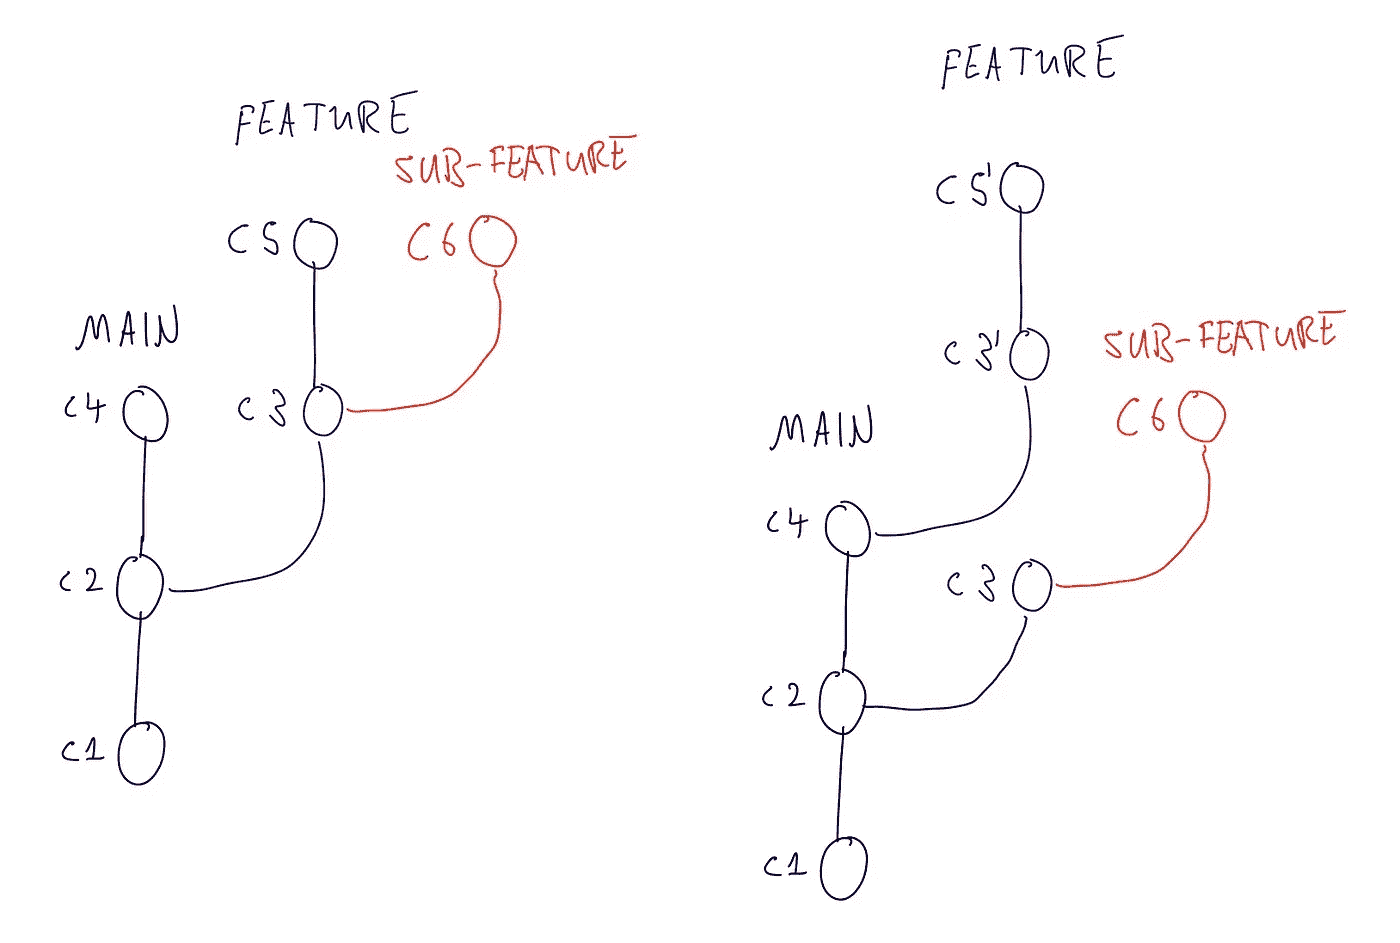 FEATURE
SUB-FEATURE
C5
C6
MAIN
C4
C3
C2
C1
FEATURE
C5'
C3'
SUB-FEATURE
C6
MAIN
C4
C3
C2
C1